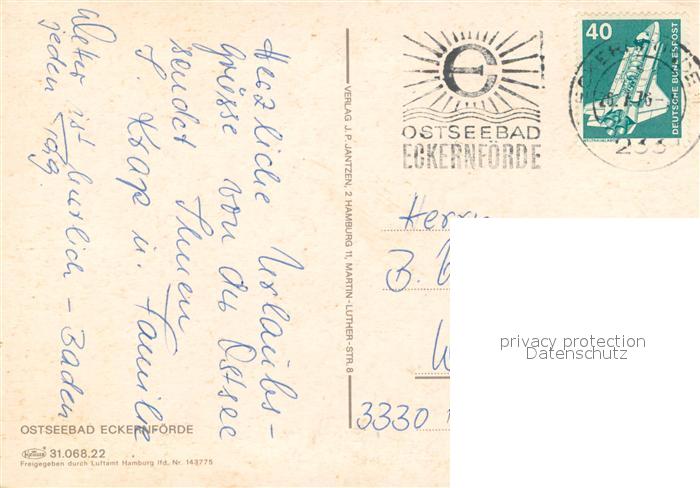 Herzliche Urlaubs-
grüsse von der Ostsee
sendet Ihnen
J. Krap u. Familie
Weter ist herlich - Baden
jeden Tag.
OSTSEEBAD ECKERNFÖRDE
Krüger 31.068.22
Freigegeben durch Luftamt Hamburg lfd. Nr. 143775
VERLAG J. P. JANTZEN, 2 HAMBURG 11, MARTIN-LUTHER-STR. 8
OSTSEEBAD
ECKERNFÖRDE
40
DEUTSCHE BUNDESPOST
Herrn
3330
privacy protection
Datenschutz